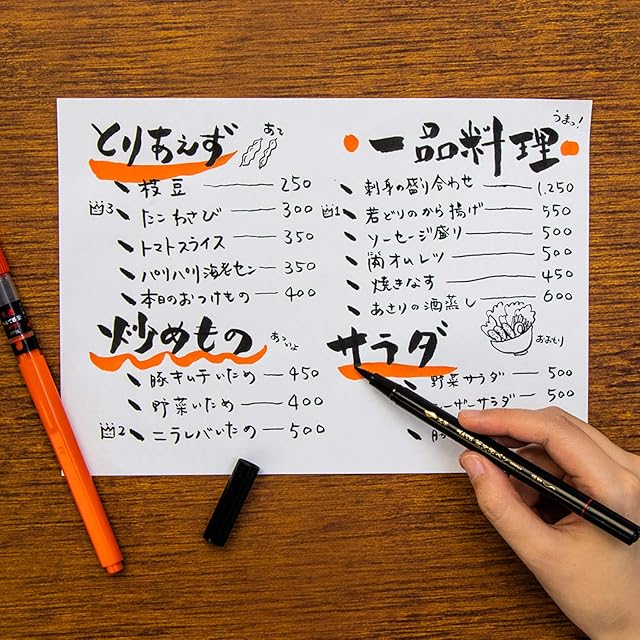 とりあえず
あて
枝豆 250
3 たこわさび 300
トマトスライス 350
パリパリ海老セン 350
本日のおつけもの 400
炒めもの
あっついよ
豚キムチいため 450
野菜いため 400
2 ニラレバいため 500
うまっ!
一品料理
刺身の盛り合わせ 1,250
1 若どりのから揚げ 550
ソーセージ盛り 500
関オムレツ 500
焼きなす 450
あさりの酒蒸し 600
サラダ
おおもり
野菜サラダ 500
ーザーサラダ 500
豚